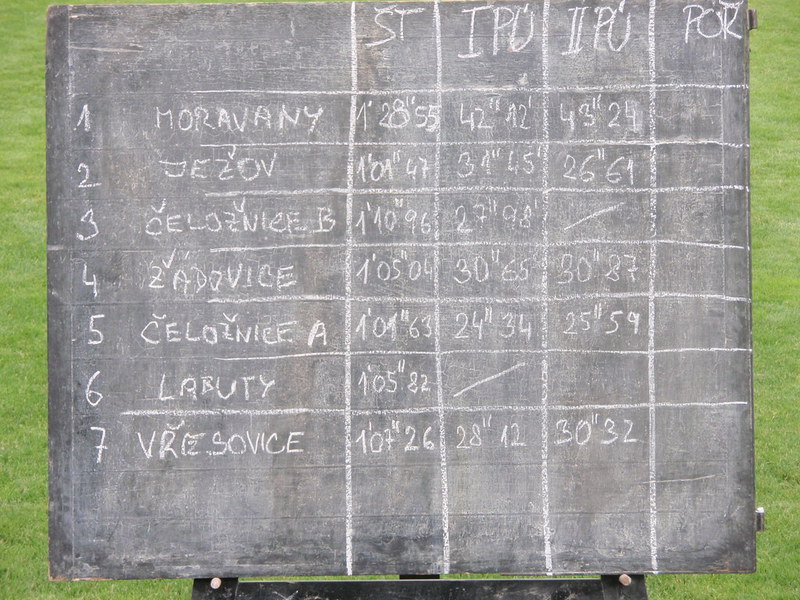 ŠT I PÚ II PÚ POŘ
1 MORAVANY 1'28"55 42"12 43"24
2 JEŽOV 1'01"47 31"45 26"61
3 ČELOŽNICE B 1'10"96 27"98 /
4 ŽÁDOVICE 1'05"04 30"65 30"87
5 ČELOŽNICE A 1'01"63 24"34 25"59
6 LABUTY 1'05"82 /
7 VŘESOVICE 1'07"26 28"12 30"32